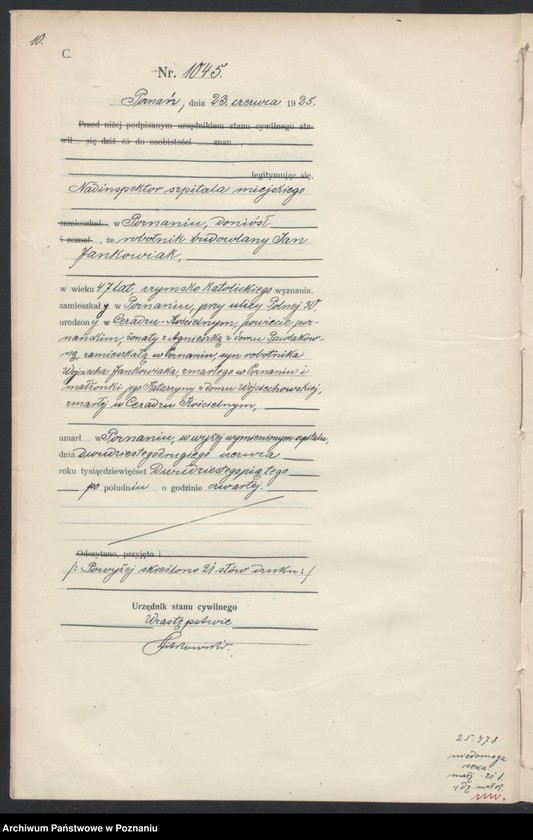 10.
C.
Nr. 1045.
Poznań, dnia 23. czerwca 1925.
Przed niżej podpisanym urzędnikiem stanu cywilnego sta-
wił się dziś co do osobistości znan ,
legitymując się.
Nadinspektor szpitala miejskiego
zamieszkał w Poznaniu, doniósł
i zeznał , że robotnik budowlany Jan
Jankowiak,
w wieku 47 lat, rzymsko katolickiego wyznania.
zamieszkały w Poznaniu, przy ulicy Polnej 30,
urodzony w Ceradzu-Kościelnym, powiecie poz-
nańskim, żonaty z Agnieszką z domu Pawlaków-
ną, zamieszkałą w Poznaniu, syn robotnika
Wojciecha Jankowiaka, zmarłego w Poznaniu i
małżonki jego Katarzyny z domu Wojciechowskiej,
zmarłej w Ceradzu Kościelnym,
umarł w Poznaniu, w wyżej wymienionym szpitalu,
dnia Dwudziestegodrugiego czerwca
roku tysiącdziewięćset Dwudziestegopiątego
po południu o godzinie czwartej.
Odczytano, przyjęto i
/: Powyżej skreślono 21 słów druku :/
Urzędnik stanu cywilnego
W zastępstwie
25.478
niedomoga
serca
małż. 20 l.
Archiwum Państwowe w Poznaniu